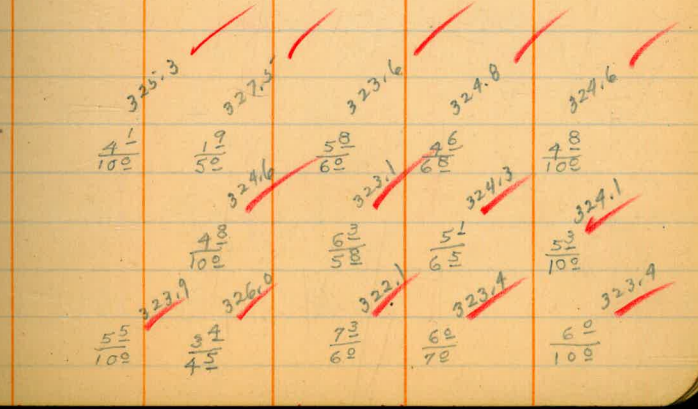 325.3 327.5 323.6 324.8 324.6
4 1/10 0 1 9/5 0 5 8/6 0 4 6/6 8 4 8/10 0
324.6 323.1 324.3 324.1
4 8/10 0 6 3/5 8 5 1/6 5 5 3/10 0
323.9 326.0 322.1 323.4 323.4
5 5/10 0 3 4/4 5 7 3/6 0 6 0/7 0 6 0/10 0